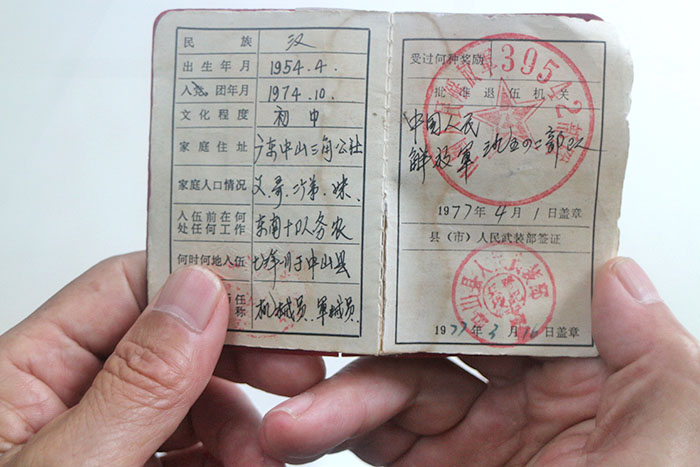 民族 汉
出生年月 1954.4.
入党、团年月 1974.10.
文化程度 初中
家庭住址 广东中山三角公社
家庭人口情况 父.哥.二弟.妹.
入伍前在何处任何工作 东南十队务农
何时何地入伍 于中山县
机械员.軍械员.
受过何种奖励
批准退伍机关
39542部队
中国人民
解放軍
1977年4月1日盖章
县(市)人民武装部签证
中山县人民武装部
1977年3月16日盖章